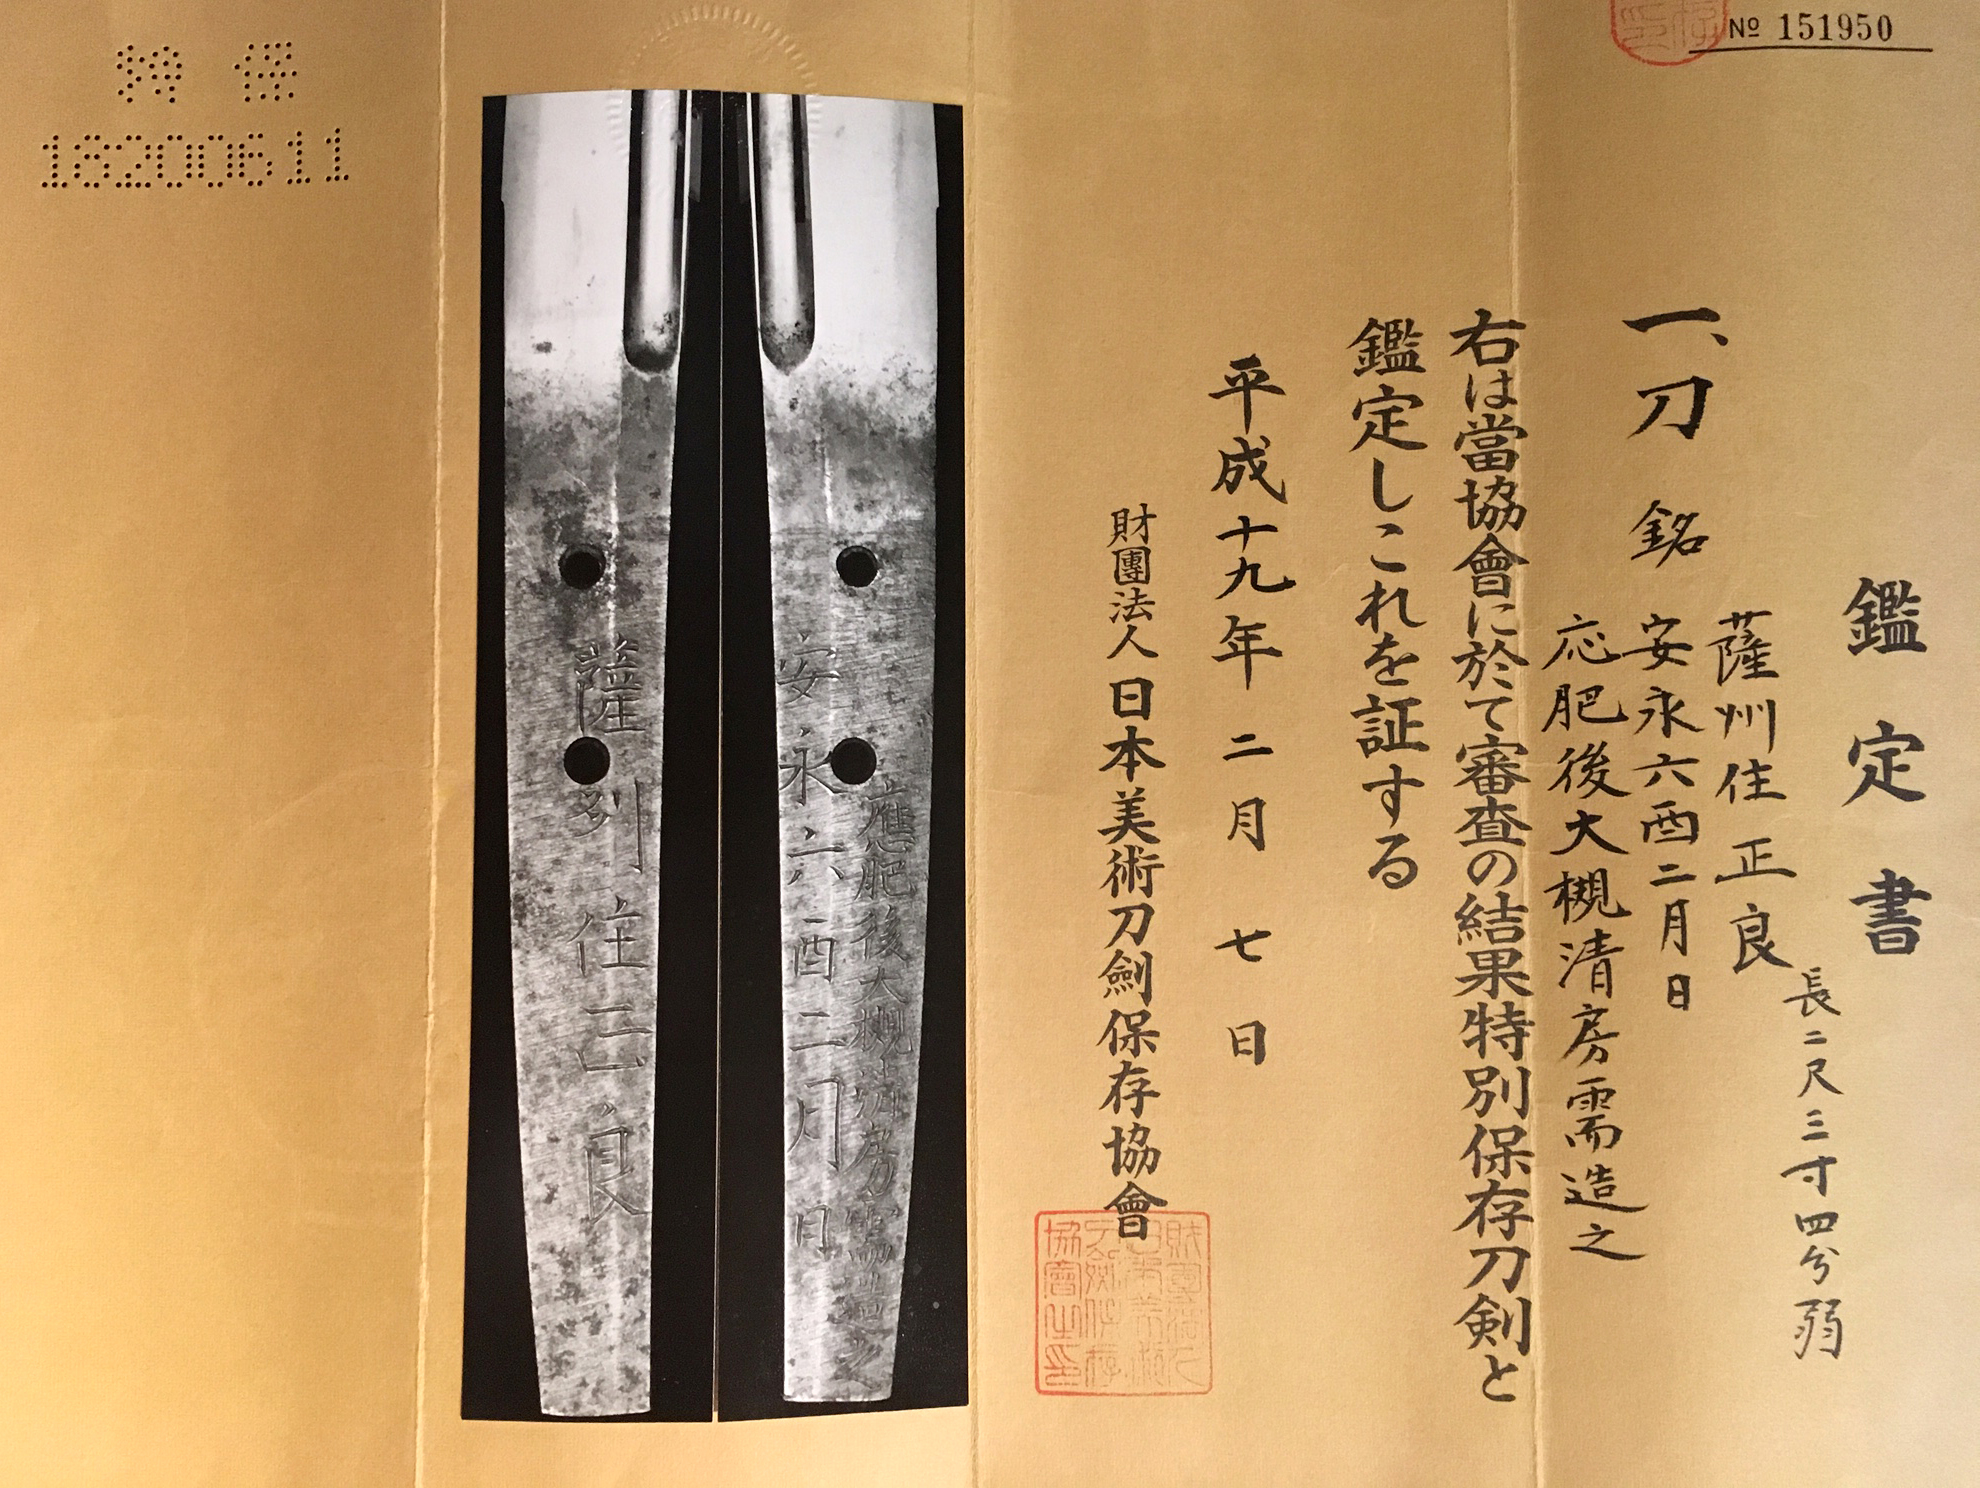 № 151950
鑑定書
一、刀 銘 薩州住正良
長二尺三寸四分弱
安永六酉二月日
応肥後大槻清房需造之
右は當協會に於て審査の結果特別保存刀剣と
鑑定しこれを証する
平成十九年二月七日
財團法人 日本美術刀劍保存協會
安永六酉二月日
應肥後大槻清房需造之
薩州住正良
特保
16200611